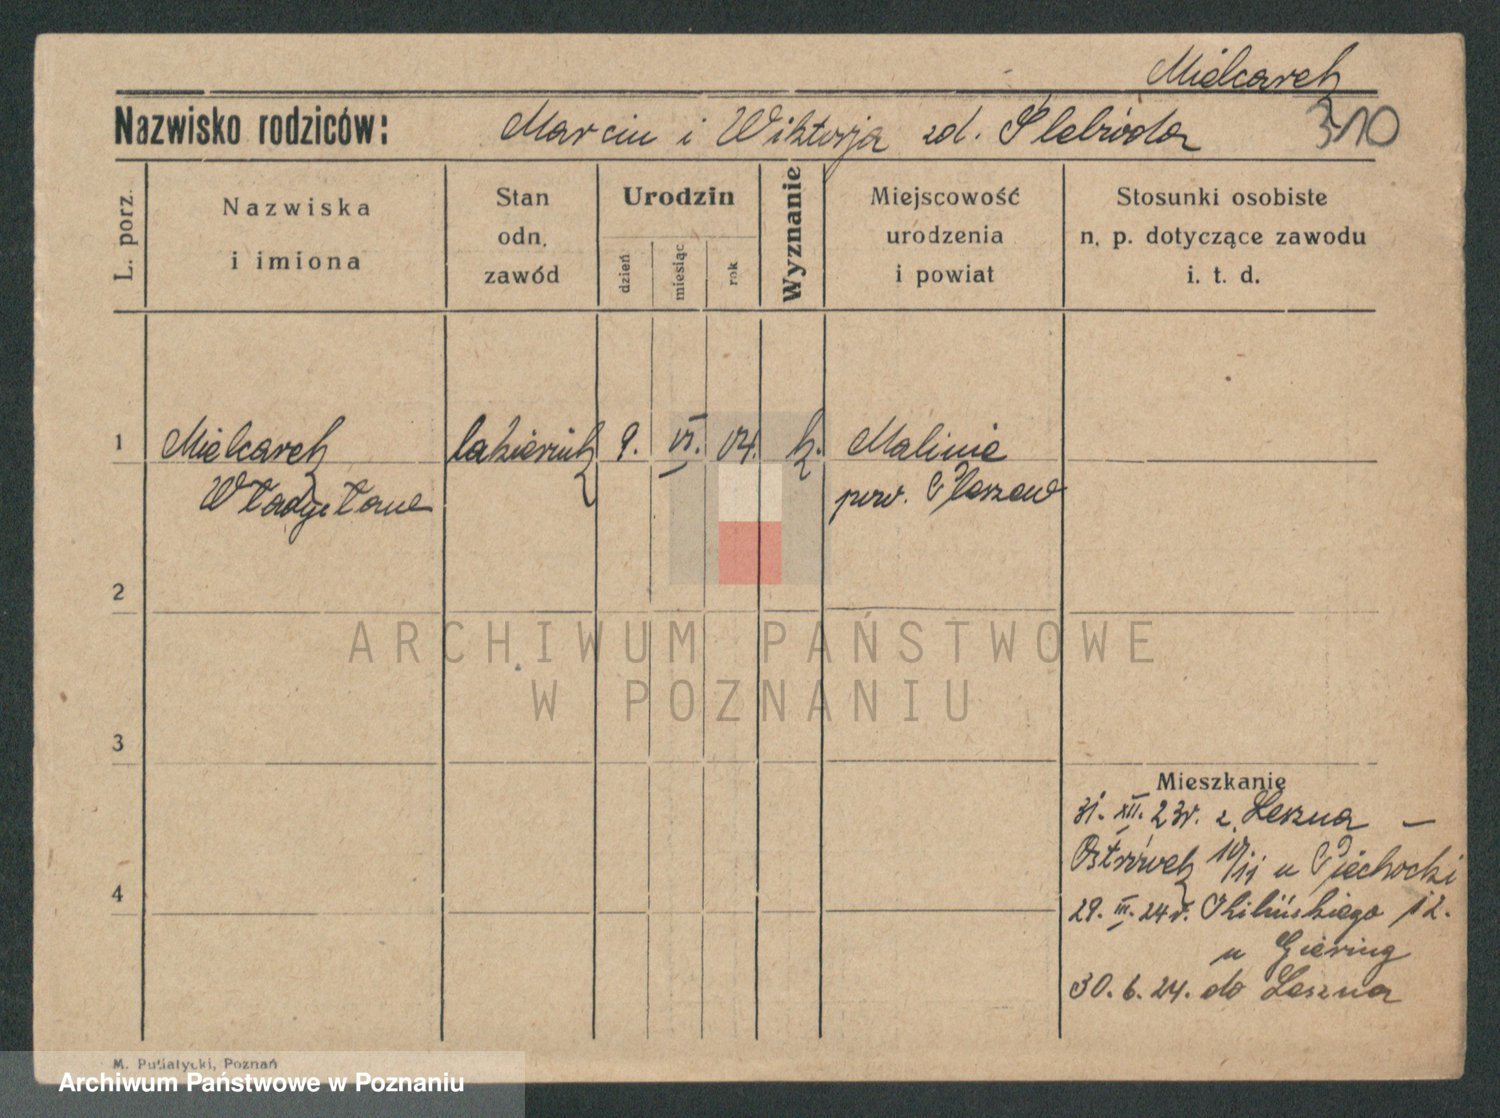 Mielcarek
Nazwisko rodziców: Marcin i Wiktorja zd. Slebioda
310
L. porz.
Nazwiska i imiona
Stan odn. zawód
Urodzin
dzień
miesiąc
rok
Wyznanie
Miejscowość urodzenia i powiat
Stosunki osobiste n. p. dotyczące zawodu i. t. d.
1 Mielcarek lakiernik 9. VI. 04. k. Malinie
Władysław pow. Pleszew
2
ARCHIWUM PAŃSTWOWE
W POZNANIU
3
Mieszkanie
31. XII. 23r. z Leszna —
Ostrówek 10/11 u Piechocki
4
29. III. 24r. Kilińskiego 12.
u Giering
30. 6. 24. do Leszna
M. Putiatycki, Poznań
Archiwum Państwowe w Poznaniu